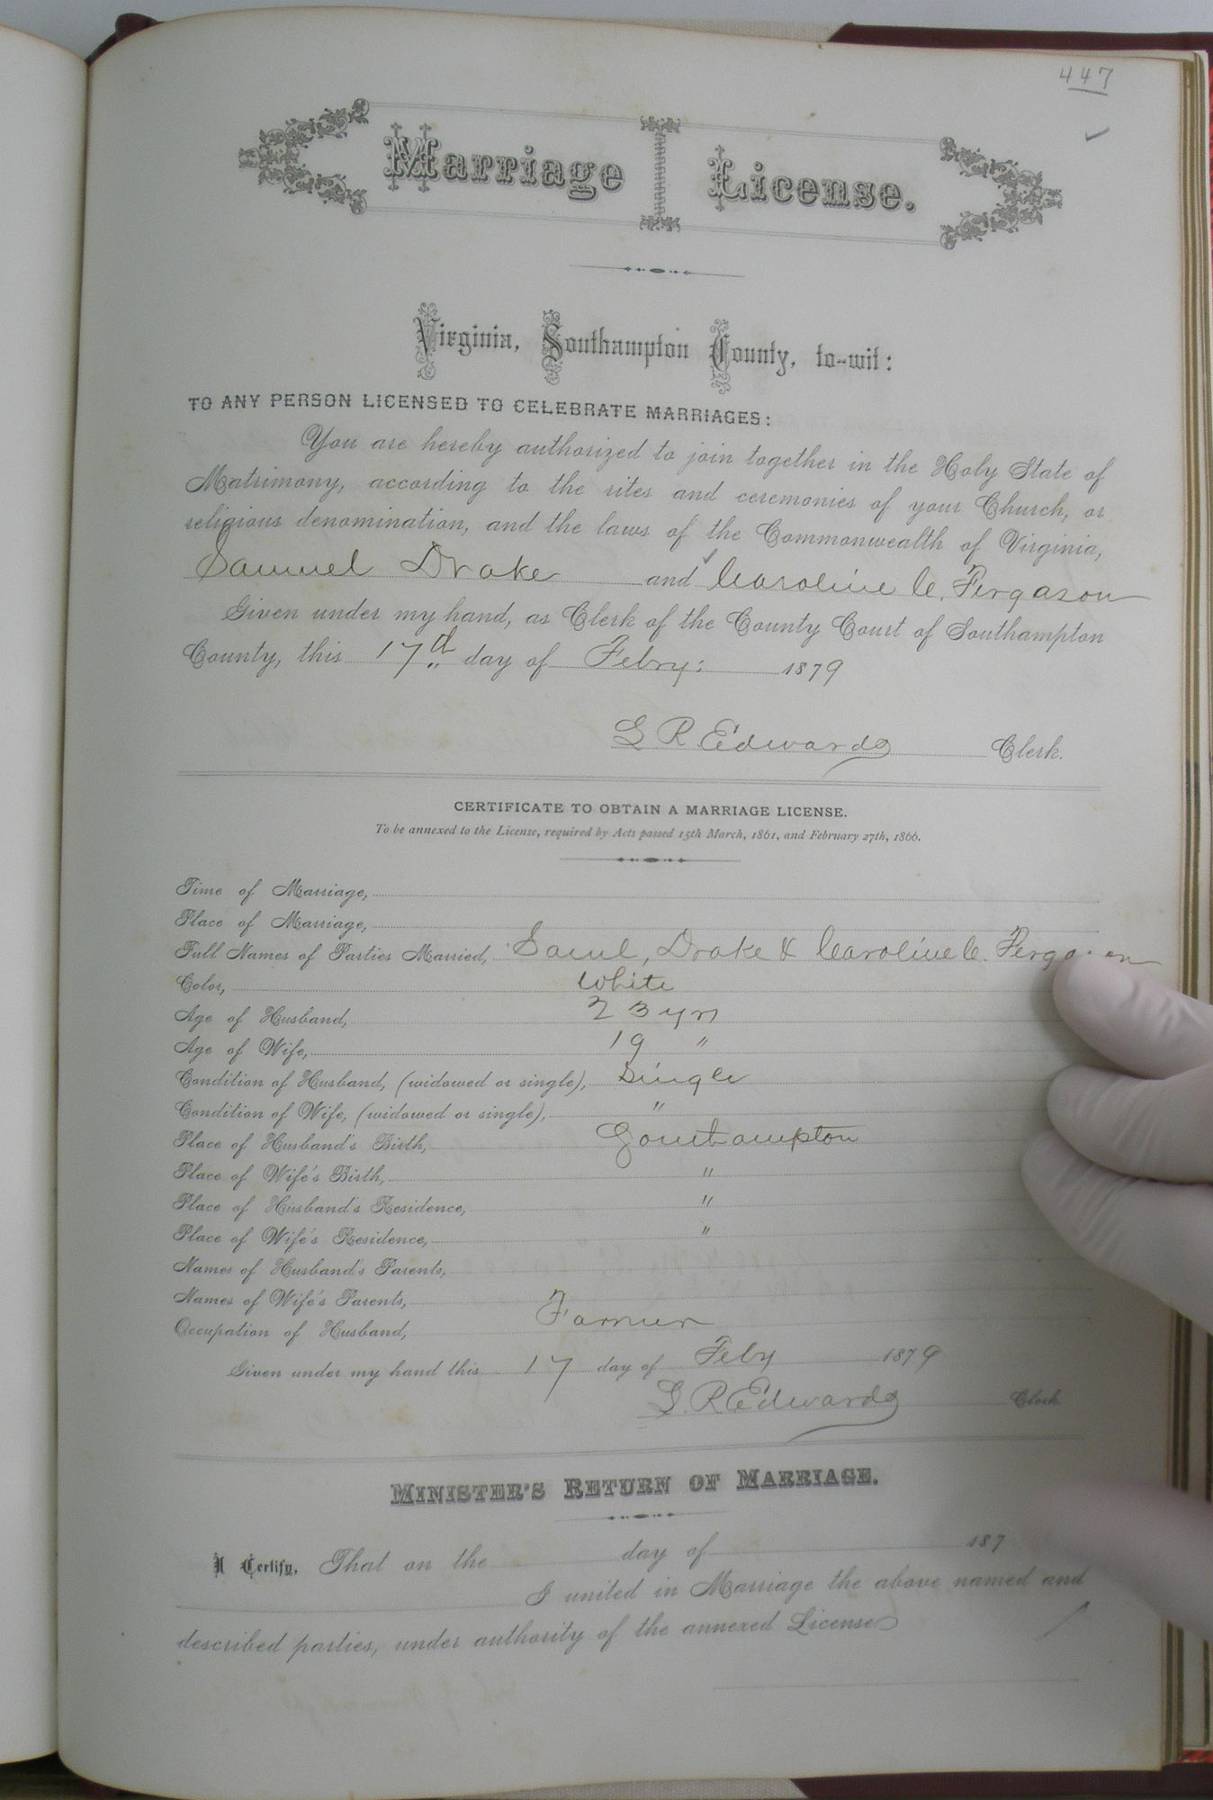 447
Marriage License.
Virginia, Southampton County, to-wit:
TO ANY PERSON LICENSED TO CELEBRATE MARRIAGES:
You are hereby authorized to join together in the Holy State of
Matrimony, according to the rites and ceremonies of your Church, or
religious denomination, and the laws of the Commonwealth of Virginia,
Samuel Drake and Caroline C. Fergason
Given under my hand, as Clerk of the County Court of Southampton
County, this 17th day of Febry: 1879
L R Edwards Clerk.
CERTIFICATE TO OBTAIN A MARRIAGE LICENSE.
To be annexed to the License, required by Acts passed 15th March, 1861, and February 27th, 1866.
Time of Marriage,
Place of Marriage,
Full Names of Parties Married, Saml, Drake & Caroline C. Fergason
Color, White
Age of Husband, 23 yrs
Age of Wife, 19 "
Condition of Husband, (widowed or single), Single
Condition of Wife, (widowed or single), "
Place of Husband's Birth, Southampton
Place of Wife's Birth, "
Place of Husband's Residence, "
Place of Wife's Residence, "
Names of Husband's Parents,
Names of Wife's Parents,
Occupation of Husband, Farmer
Given under my hand this 17 day of Feby 1879
L. R. Edwards Clerk.
MINISTER'S RETURN OF MARRIAGE.
I Certify, That on the day of 187
I united in Marriage the above named and
described parties, under authority of the annexed License